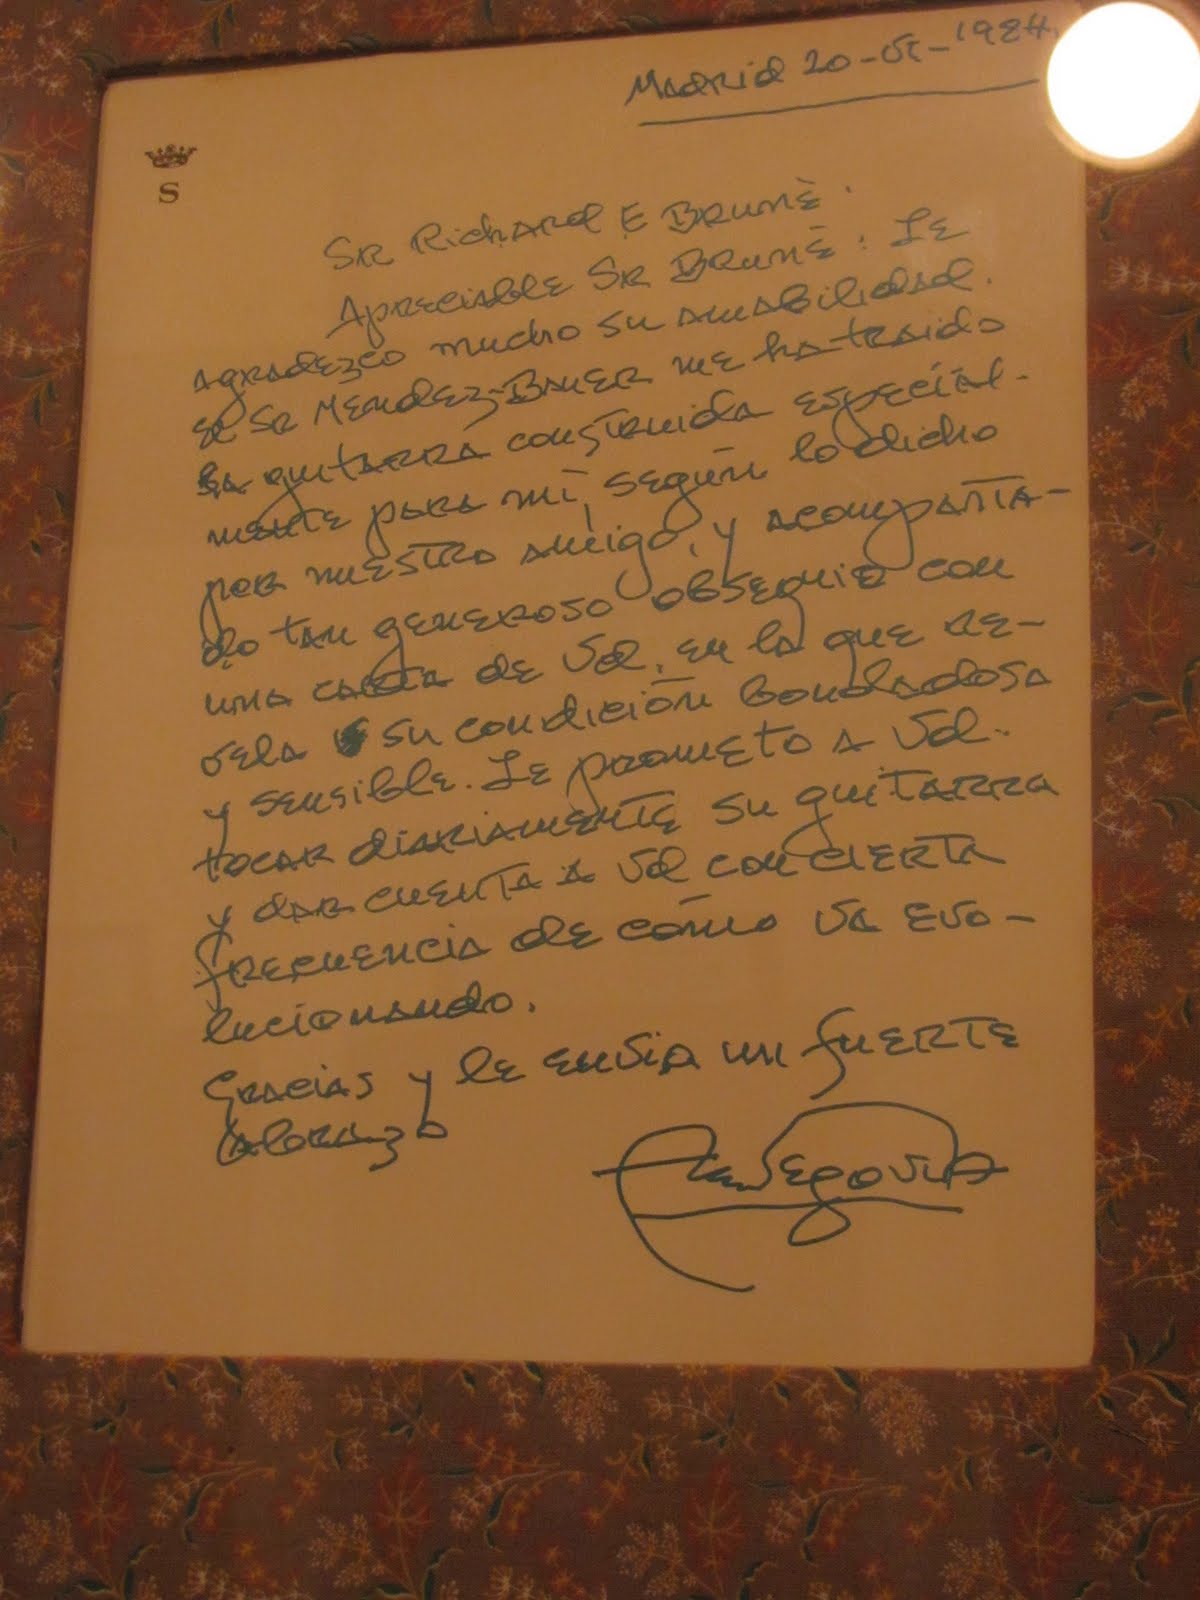 Madrid 20-VI-1984.
S
Sr Richard E Brunè.
Apreciable Sr Brunè: Le
agradezco mucho su amabilidad.
El Sr Mendez-Bauer me ha traido
la guitarra construida especial-
mente para mí, según lo dicho
por nuestro amigo, y acompaña-
do tan generoso obsequio con
una carta de Vd. en la que re-
vela su condición bondadosa
y sensible. Le prometo a Vd.
tocar diariamente su guitarra
y dar cuenta a Vd con cierta
frecuencia de cómo va evo-
lucionando.
Gracias y le envia un fuerte
abrazo
Segovia